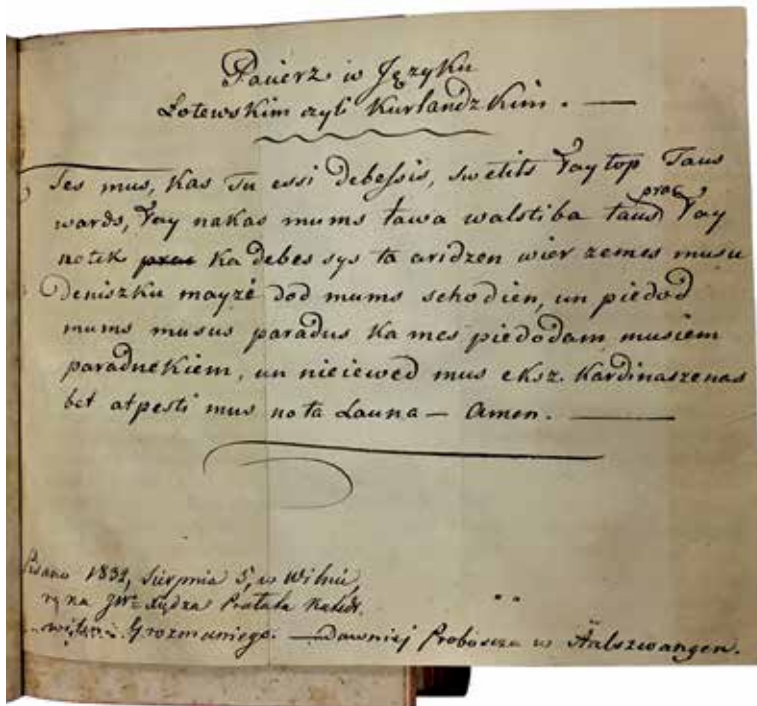 Pacierz w Języku
Łotewskim czyli Kurlandzkim. —
Tes mus, Kas Tu essi debessis, swetits Tay top Taus
wards, Tay nakas mums tawa walstiba taus prac Tay
notek prac Ka debes sys ta aridzen wier zemes musu
Deniszku mayzé dod mums schodien, un piedod
mums musus paradus Ka mes piedodam musiem
paradnekiem, un nieiewed mus eksz. Kardinaszenas
bet atpesti mus no ta Launa — Amen. —
Pisano 1832, Sierpnia 5, w Wilnie,
ręką JW: xiędza Prałata Katedr.
Grozmaniego. — Dawniej Proboszcza w Alszwangen.